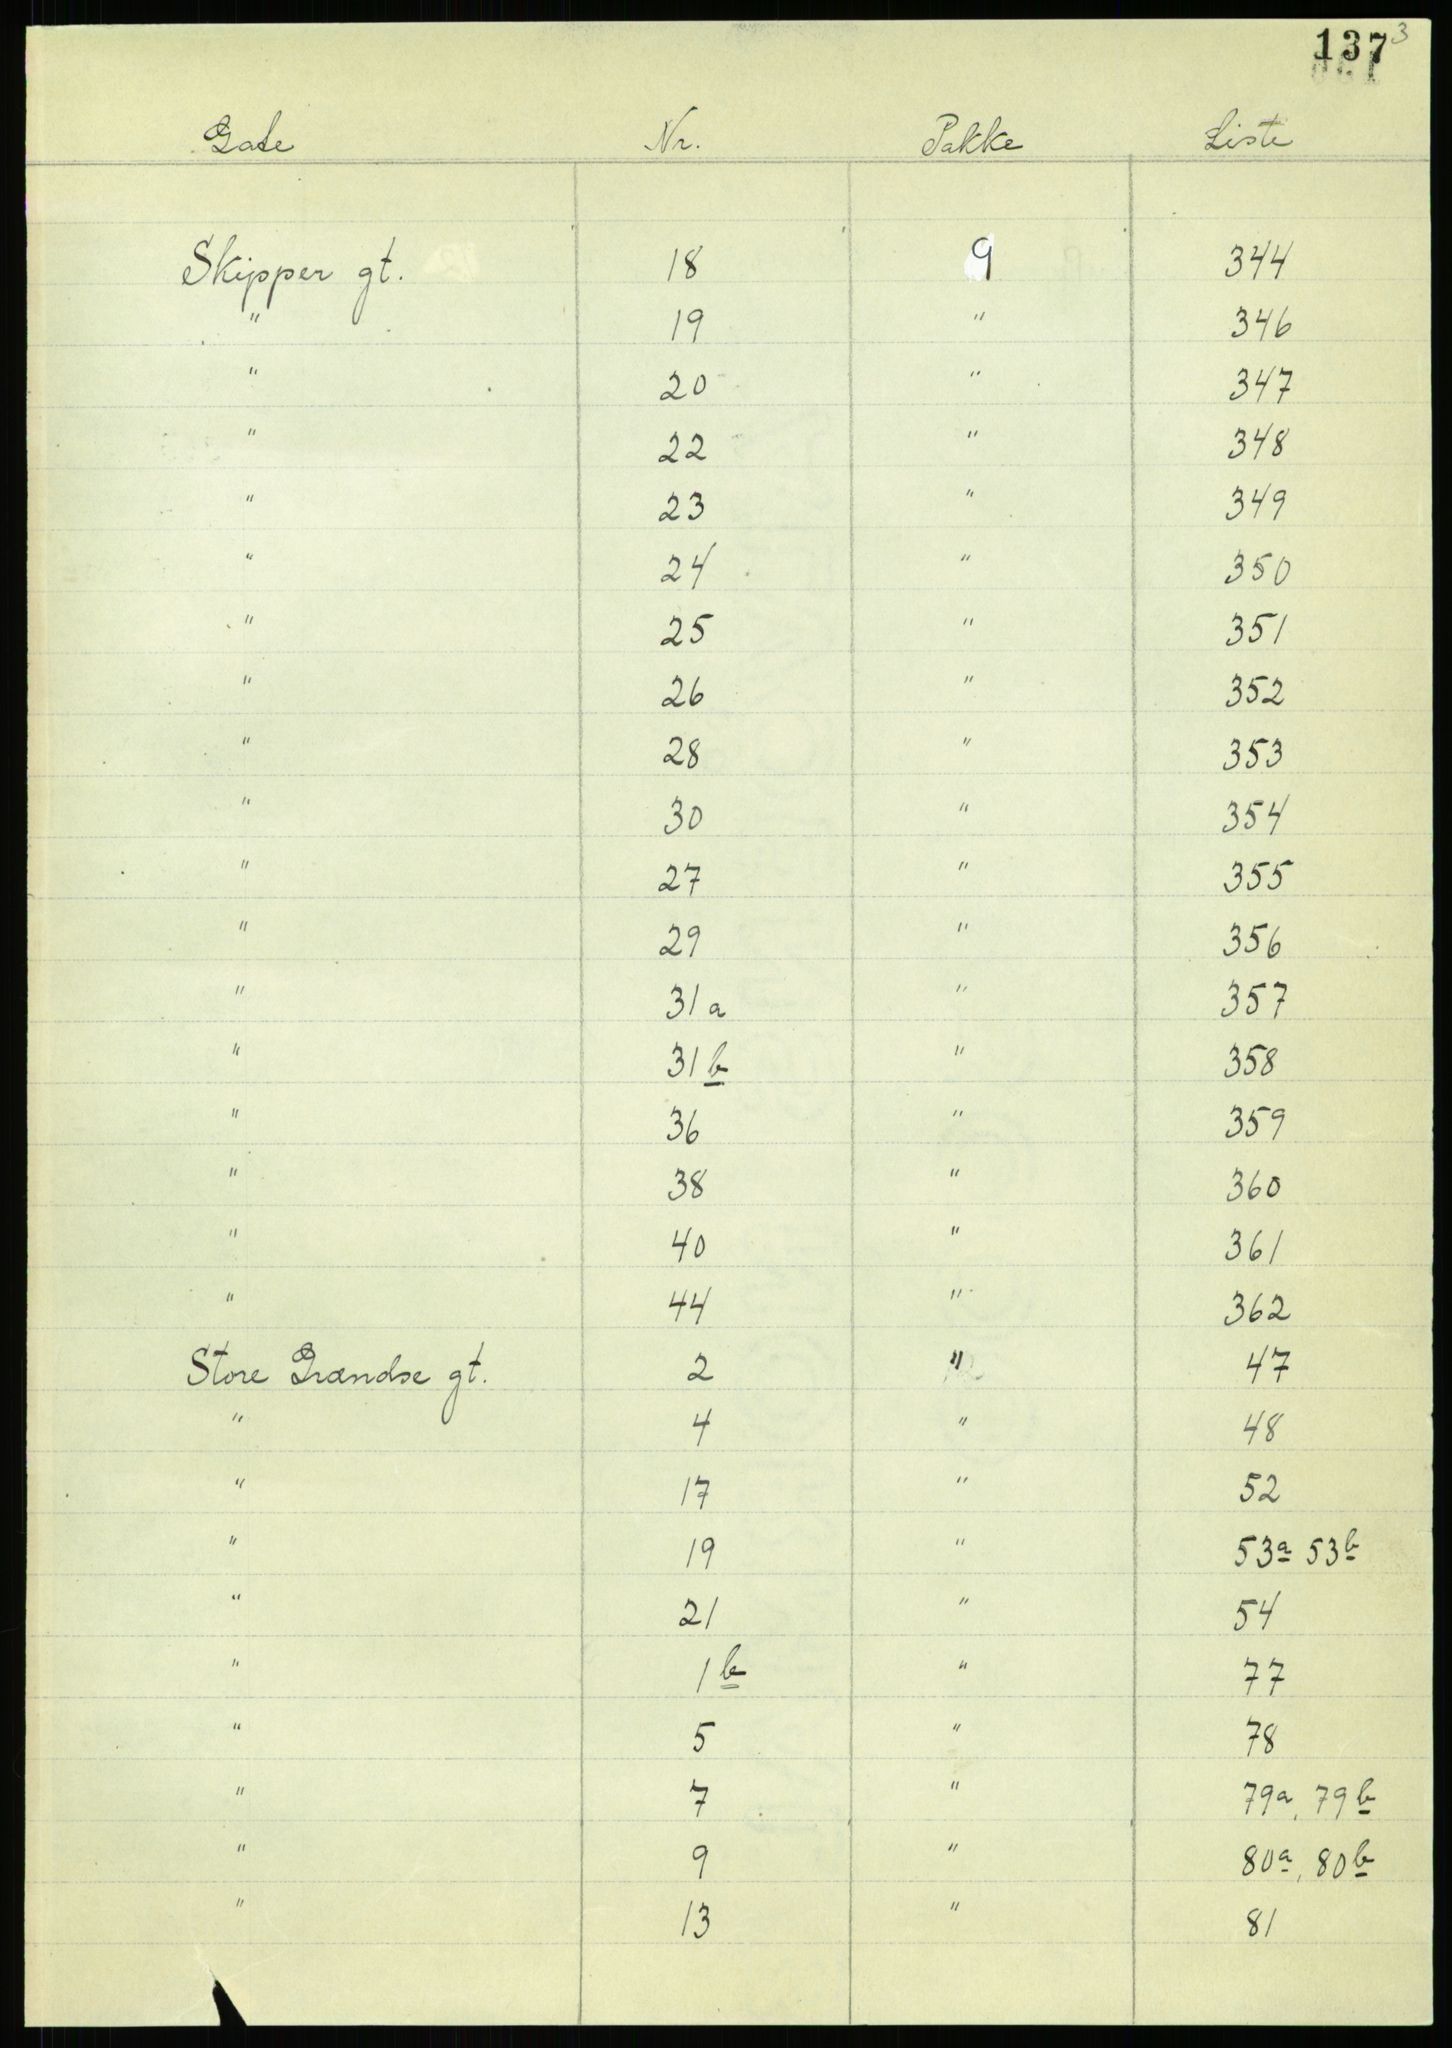 137 3
Gate Nr. Pakke Liste
Skipper gt. 18 9 344
" 19 " 346
" 20 " 347
" 22 " 348
" 23 " 349
" 24 " 350
" 25 " 351
" 26 " 352
" 28 " 353
" 30 " 354
" 27 " 355
" 29 " 356
" 31a " 357
" 31b " 358
" 36 " 359
" 38 " 360
" 40 " 361
" 44 " 362
Store Grændse gt. 2 " 47
" 4 " 48
" 17 " 52
" 19 " 53a 53b
" 21 " 54
" 1b " 77
" 5 " 78
" 7 " 79a, 79b
" 9 " 80a, 80b
" 13 " 81